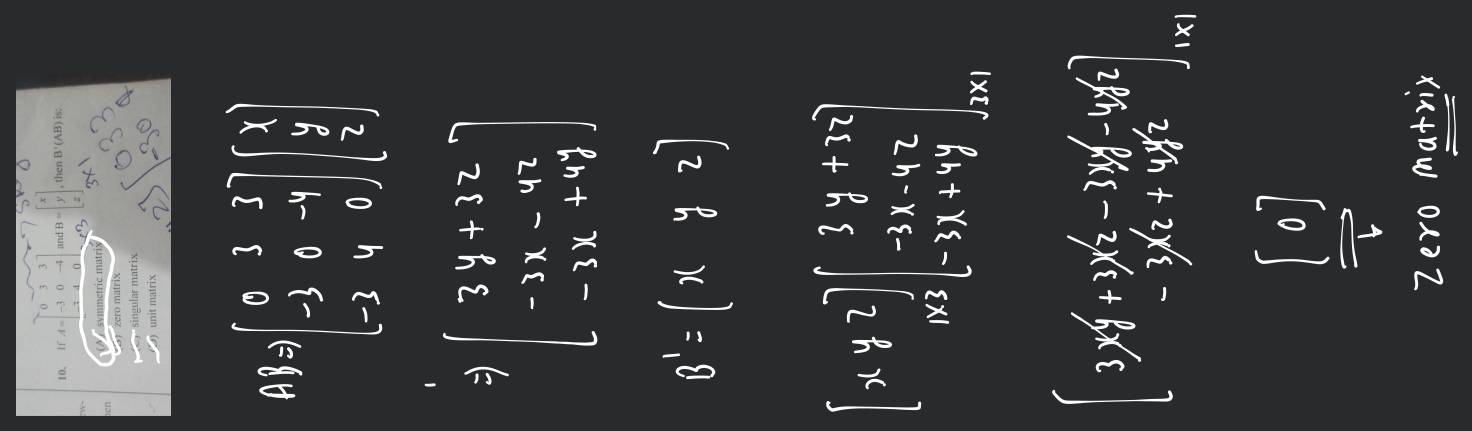 10. If A = [ 0 3 3
-3 0 -4
-3 4 0 ] and B = [ x
y
z ], then B'(AB) is:
symmetric matrix
zero matrix
singular matrix
unit matrix
3x1
AB =) [ 0 3 3 ] [ x ]
[ -3 0 -4 ] [ y ]
[ -3 4 0 ] [ z ]
=) [ 3y + 3z ]
[ -3x - 4z ]
[ -3x + 4y ]
B' = [ x y z ]
[ x y z ] 1x3 [ 3y + 3z
-3x-4z
-3x+4y ] 3x1
[ 3xy + 3xz - 3xy - 4yz
- 3xz + 4yz ] 1x1
[ 0 ]
Zero matrix